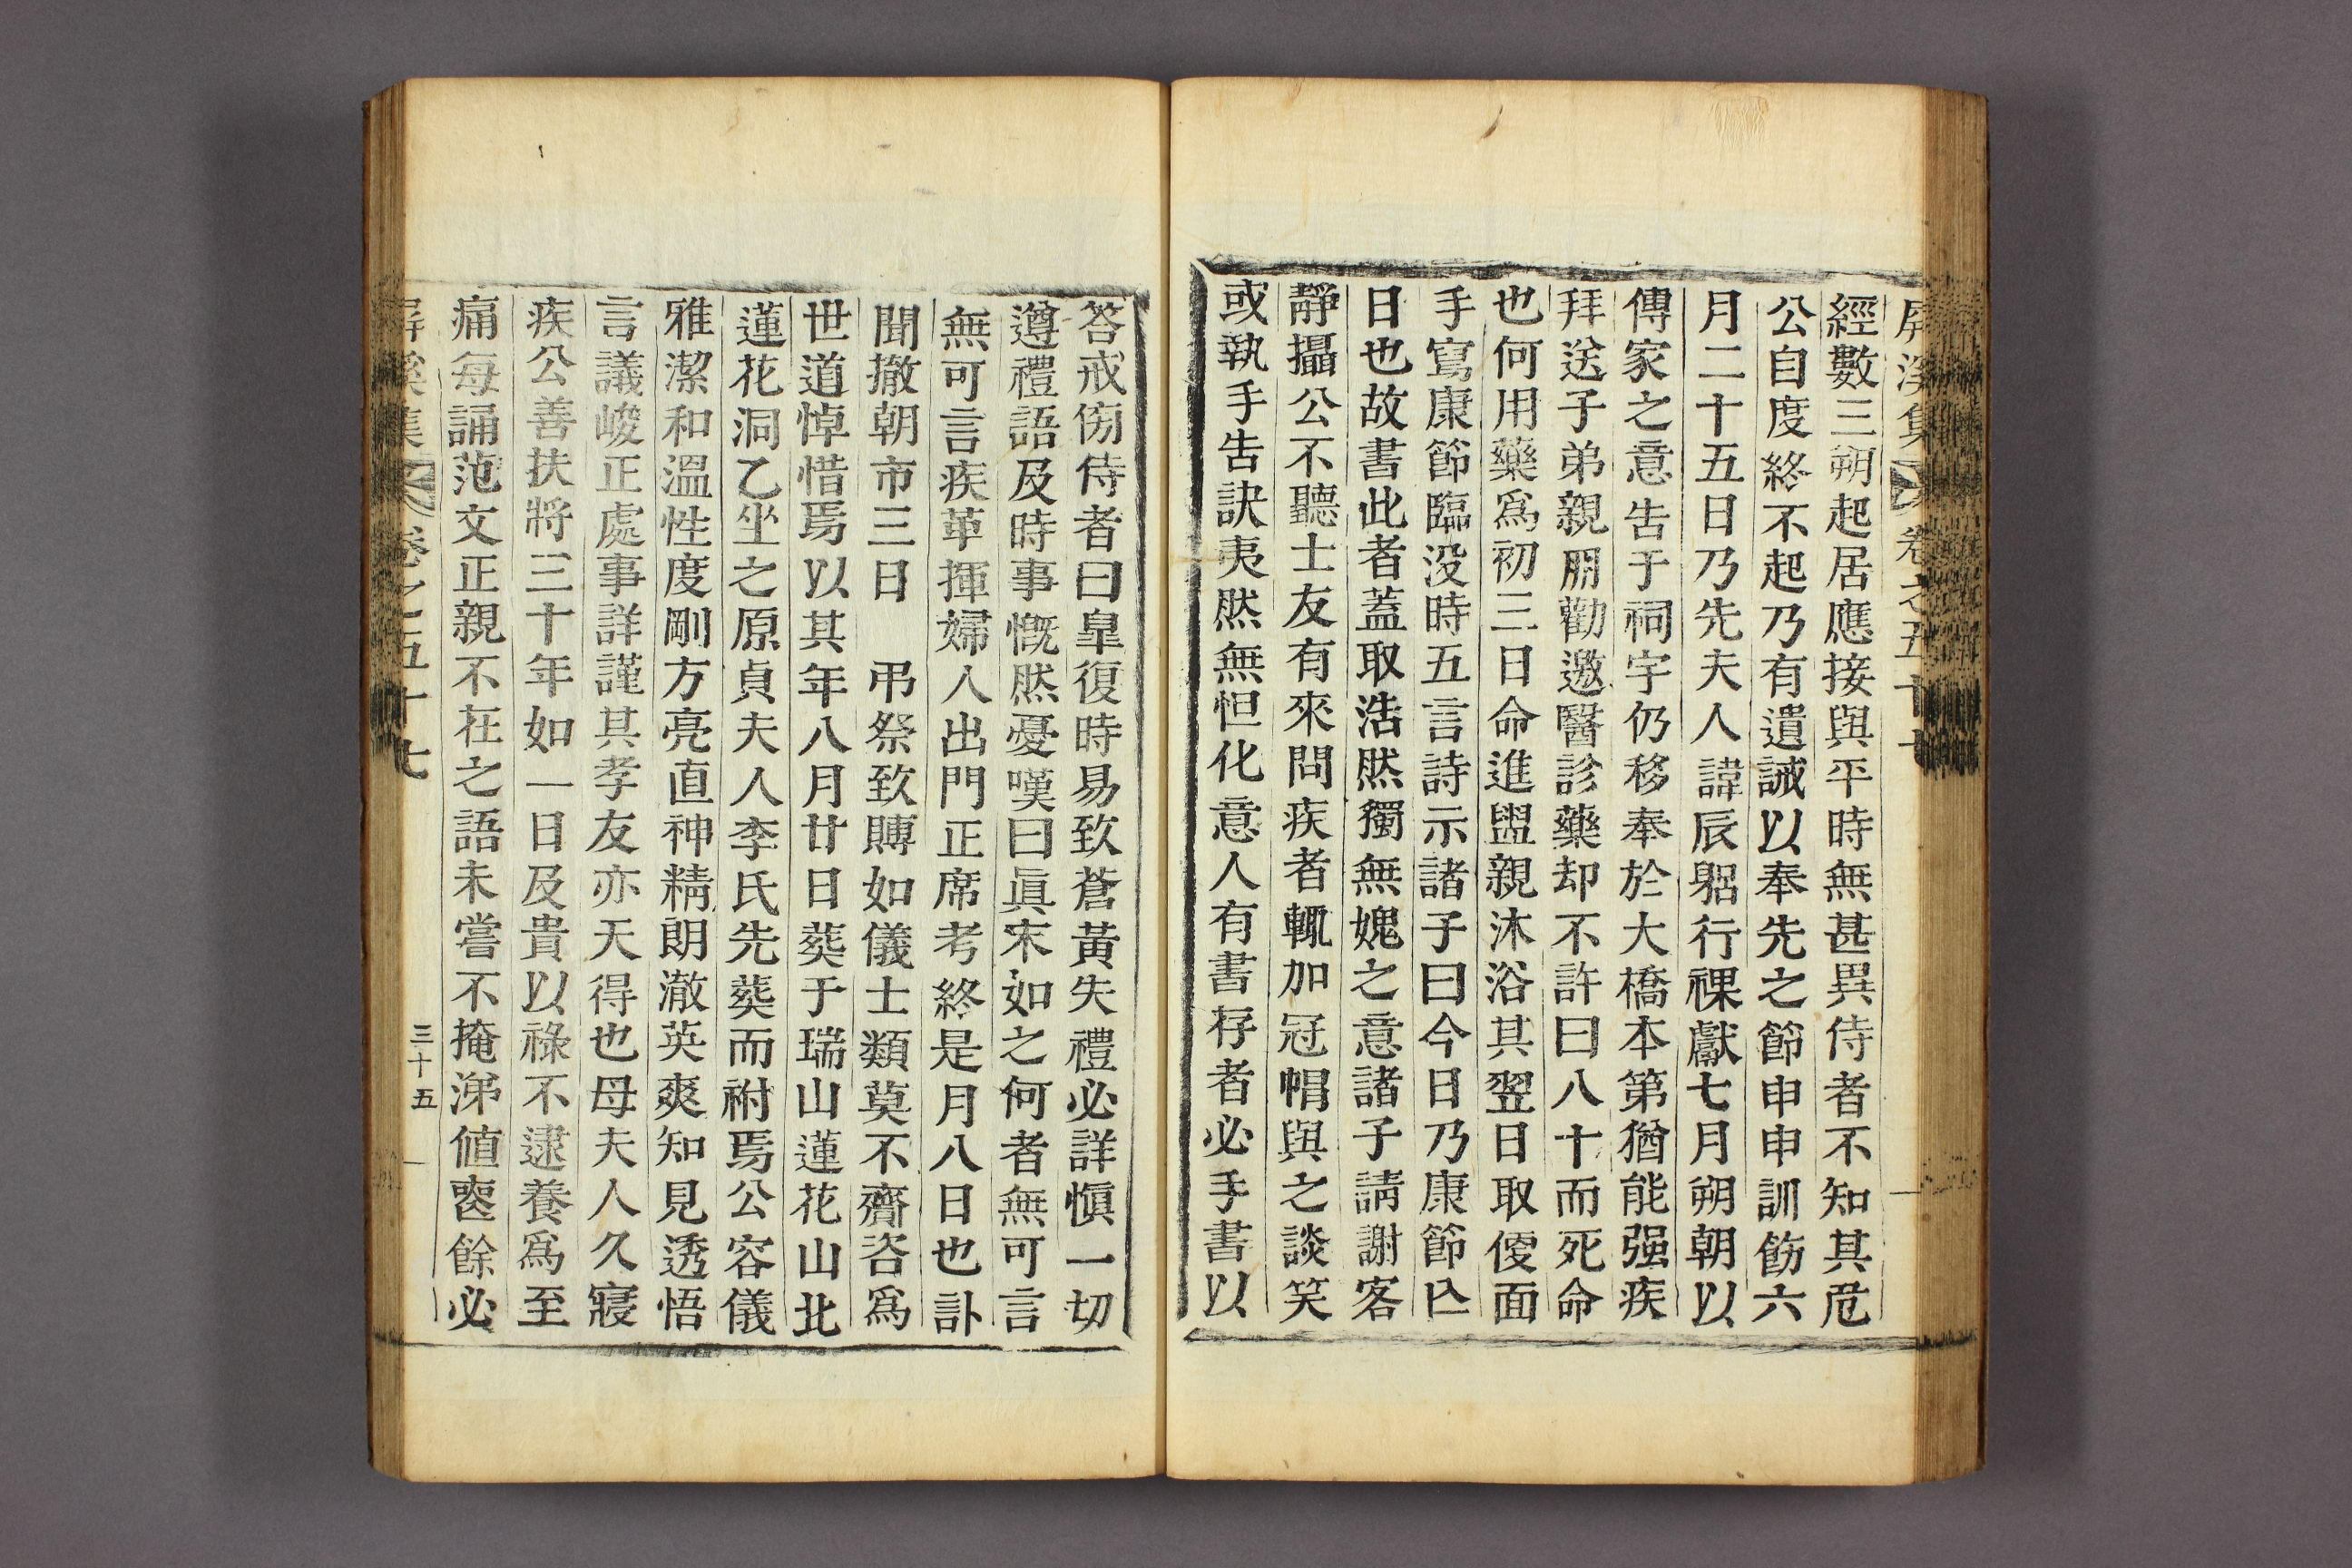 屛溪集 卷之五十七
經數三朔起居應接與平時無甚異侍者不知其危
公自度終不起乃有遺誡以奉先之節申申訓飭六
月二十五日乃先夫人諱辰躬行祼獻七月朔朝以
傳家之意告于祠宇仍移奉於大橋本第猶能强疾
拜送子弟親朋勸邀醫診藥却不許曰八十而死命
也何用藥爲初三日命進盥親沐浴其翌日取便面
手寫康節臨沒時五言詩示諸子曰今日乃康節亡
日也故書此者蓋取浩然獨無媿之意諸子請謝客
靜攝公不聽士友有來問疾者輒加冠帽與之談笑
或執手告訣夷然無怛化意人有書存者必手書以
答戒傍侍者曰皐復時易致蒼黃失禮必詳愼一切
遵禮語及時事慨然憂嘆曰眞末如之何者無可言
無可言疾革揮婦人出門正席考終是月八日也訃
聞撤朝市三日 弔祭致賻如儀士類莫不齎咨爲
世道悼惜焉以其年八月廿日葬于瑞山蓮花山北
蓮花洞乙坐之原貞夫人李氏先葬而祔焉公容儀
雅潔和溫性度剛方亮直神精朗澈英爽知見透悟
言議峻正處事詳謹其孝友亦天得也母夫人久寢
疾公善扶將三十年如一日及貴以祿不逮養爲至
痛每誦范文正親不在之語未嘗不掩涕値喪餘必
屛溪集 卷之五十七 三十五